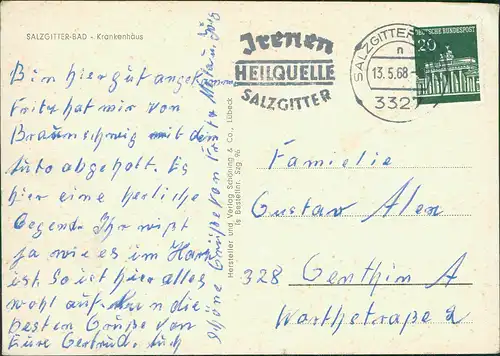 SALZGITTER-BAD - Krankenhaus
Bin hier gut angekommen
Fritz hat wir von
Braunschweig mit den
Auto abgeholt. Es
hier eine herliche
Gegend. Ihr wißt
ja wie es im Harz
ist. So ist hier alles
wohl auf. Nun die
besten Grüße von
Eure Gertrud. Euch
schöne Grüße von Fritz
Hersteller und Verlag Schöning & Co., Lübeck
Is Bestellnr. Szg 96
Irenen
HEILQUELLE
SALZGITTER
SALZGITTER
n
13.5.68
3327
DEUTSCHE BUNDESPOST
20
Familie
Gustav Alex
328 Genthin A
Warthestraße 2